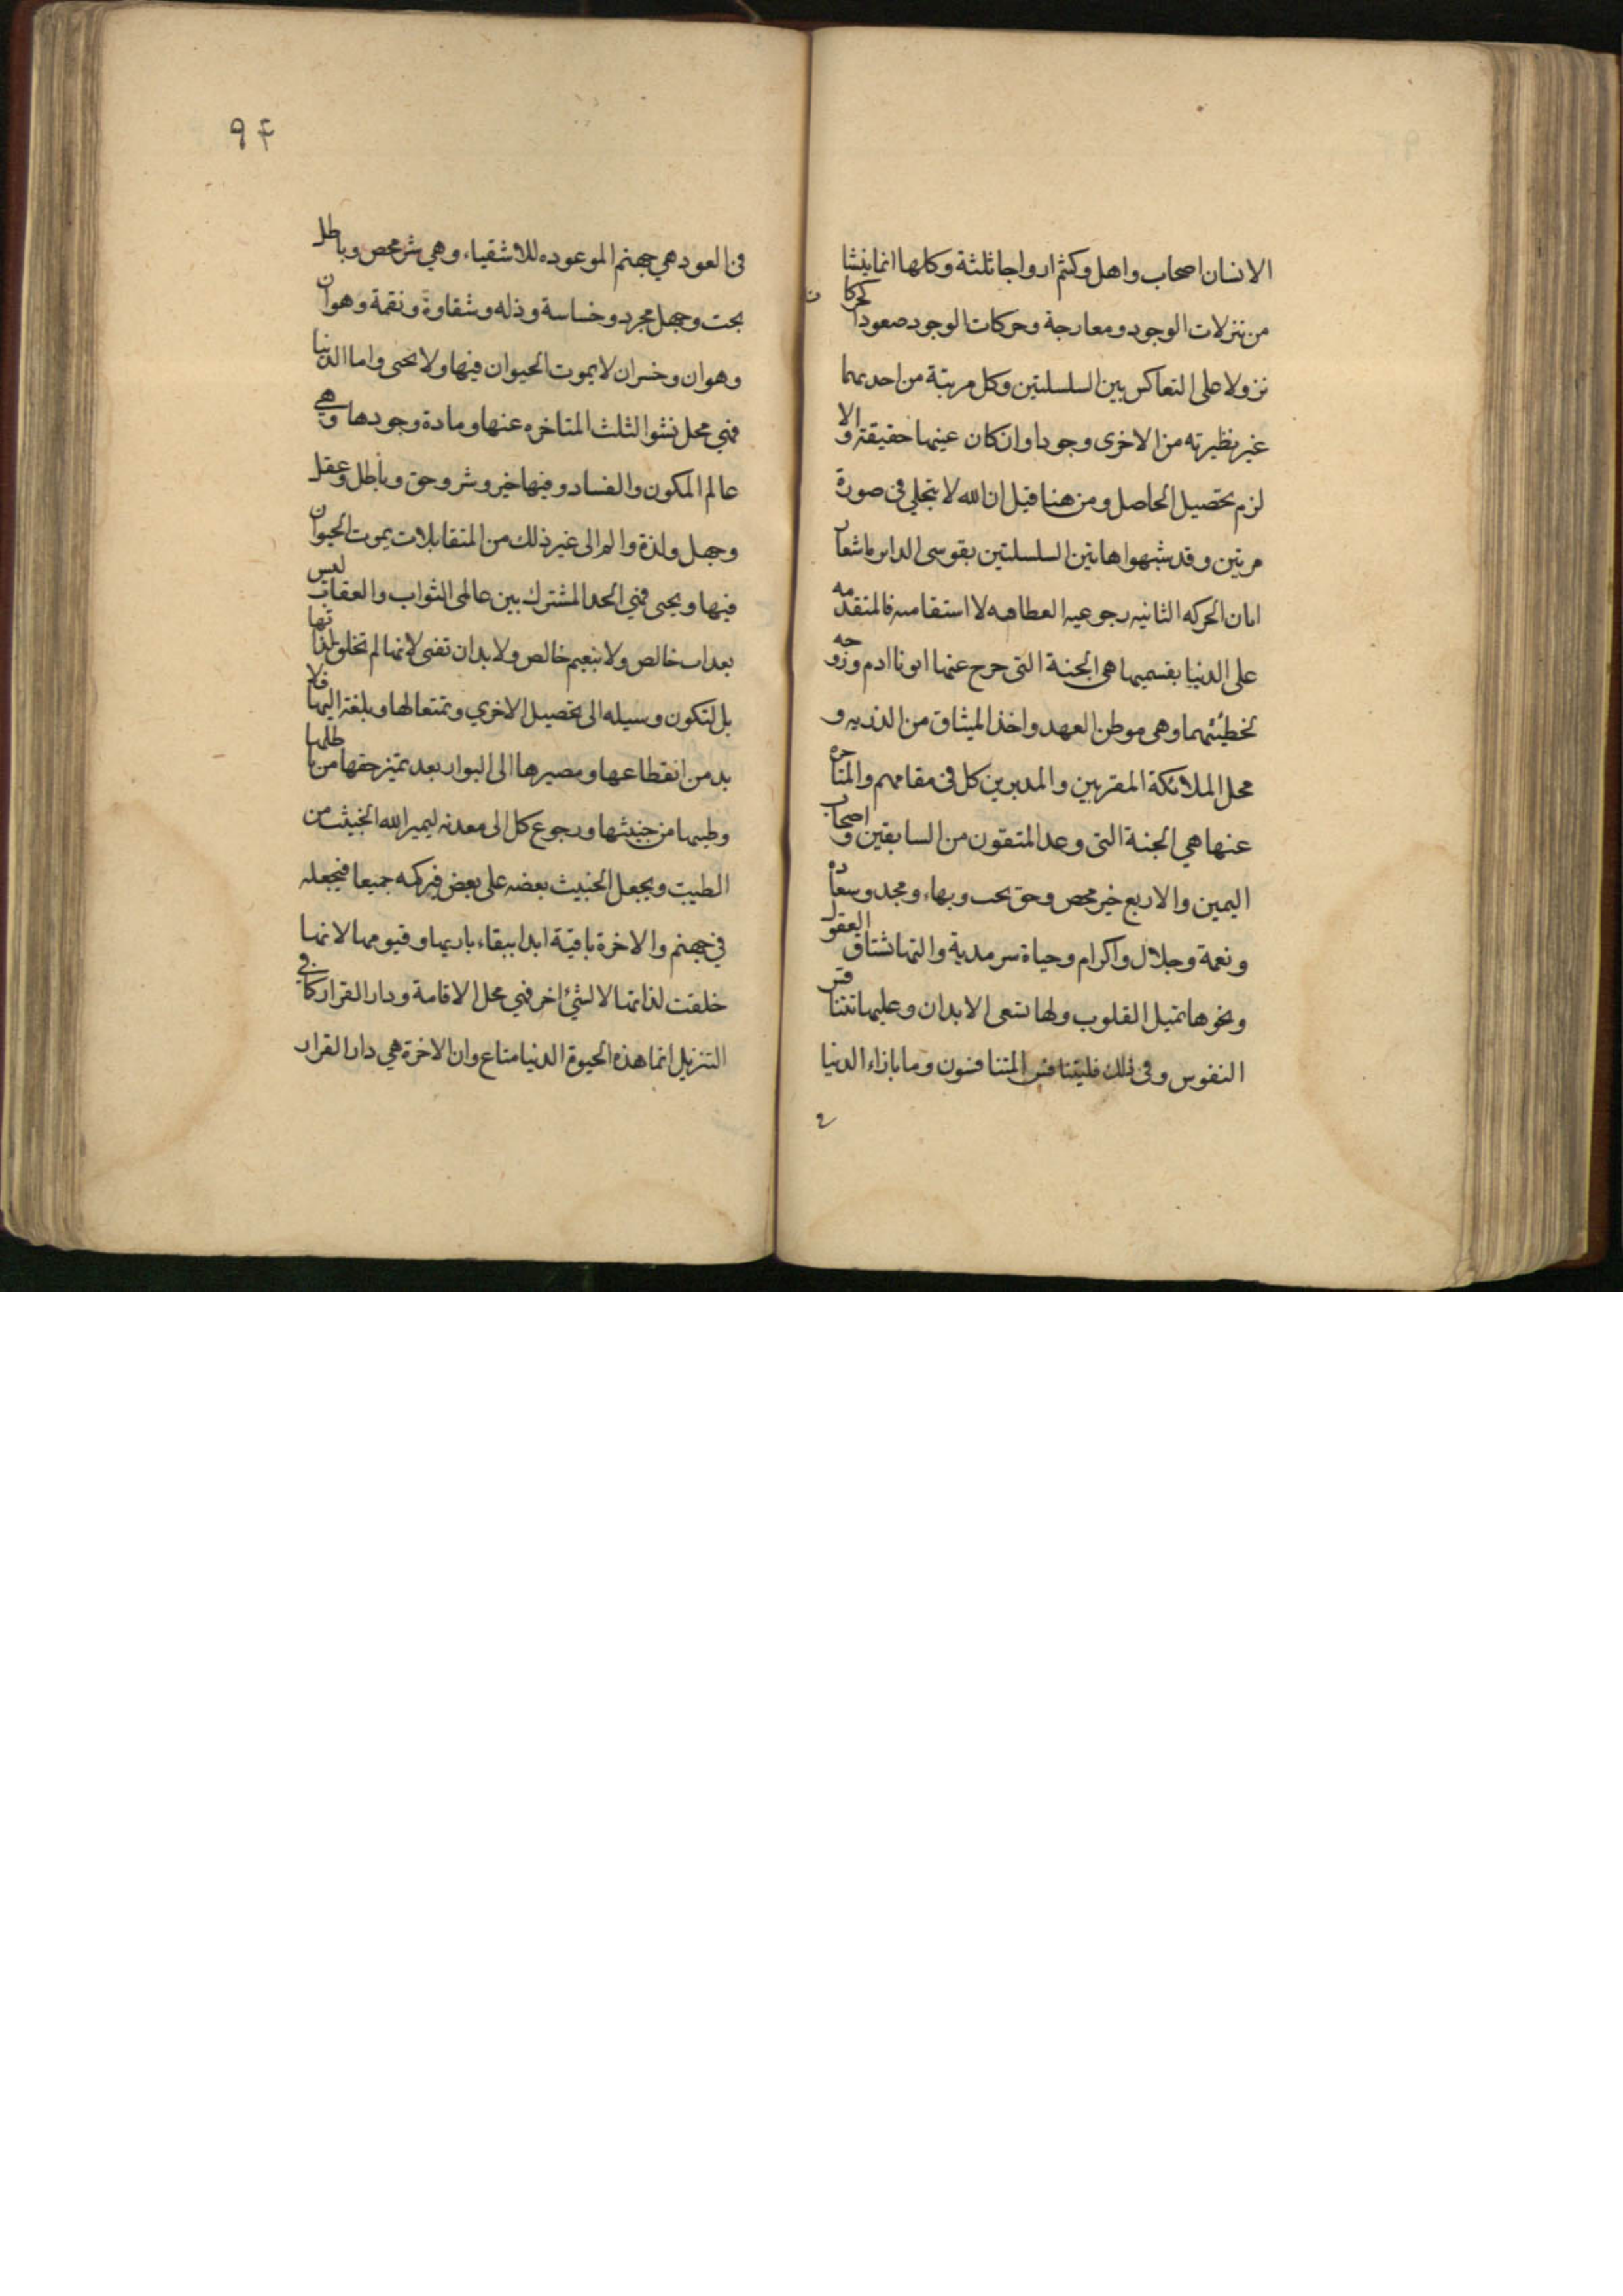 الانسان اصحاب واهل وكنتم ازواجا ثلثة وكلها انما ينشا
من تنزلات الوجود ومعارجة وحركات الوجود صعودا
نزولا على التعاكس بين السلسلتين وكل مرتبة من احديهما
غير نظيرته من الاخرى وجودا وان كان عينها حقيقته والا
لزم تحصيل الحاصل ومن هنا قيل ان الله لا يتجلى فى صورة
مرتين وقد شبهوا هاتين السلسلتين بقوسى الدايره اشعار
امان الحركه الثانيه رجوعيه انعطافيه لا استقاميه فالمتقدمه
على الدنيا بقسميها هى الجنة التى خرج عنها ابونا ادم وزوجه
لخطيئتهما وهى موطن العهد واخذ الميثاق من الذريه و
محل الملائكة المقربين والمدبرين كل فى مقامهم والمتاخره
عنها هي الجنة التى وعد المتقون من السابقين واصحاب
اليمين والاربع خير محض وحق بحب وبهاء ومجد وسعاده
ونعمة وجلال واكرام وحياة سرمدية والتها تشتاق العقول
ونحوها تميل القلوب ولها تسعى الابدان وعليها تتنا
النفوس وفى ذلك فليتنافس المتنافسون وما بازاء الدنيا
٩۴
فى العود هي جهنم الموعوده للاشقياء وهي شر محض وباطل
بحت وجهل مجرد وخساسة وذله وشقاوة ونقمة وهوان
وهوان وخسران لا يموت الحيوان فيها ولا يحيى واما الدنيا
فهي محل نشو الثلث المتاخره عنها ومادة وجودها وهي
عالم المكون والفساد وفيها خير وشر وحق وباطل وعقل
وجهل ولذة والم الى غير ذلك من المتقابلات يموت الحيوان
فيها ويحيى فهي الحد المشترك بين عالمى الثواب والعقاب ليس
بعداب خالص ولا بنعيم خالص ولا بد ان تفنى لانها لم تخلق لذاتها
بل لتكون وسيله الى تحصيل الاخري وتمتعا لها وبلغة اليها فلا
بد من انقطاعها ومصيرها الى البوار بعد تميز حقها من باطلها
وطيبها من خبيثها ورجوع كل الى معدنه ليميز الله الخبيث من
الطيب ويجعل الخبيث بعضه على بعض فيركمه جميعا فيجعله
في جهنم والاخرة باقية ابدا ببقاء باريها وقيومها لانها
خلقت لذاتها لا لشئ اخر فهي محل الاقامة ودار القرار كما في
التنزيل انما هذه الحيوة الدنيا متاع وان الاخرة هي دار القرار